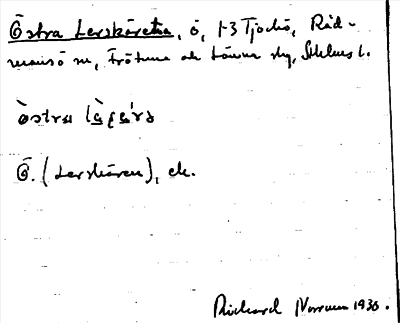 Östra Lerskäret, ö, 1-3 Tjockö, Råd-
mansö sn, Frötuna och Länna skg, Sthlms l.
Ö. (Lerskären), ek.
Richard Norman 1936.